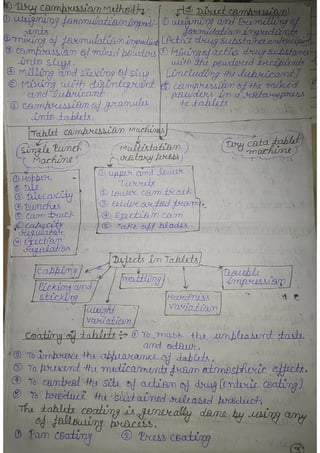 ① Dry compression Method :-
① weighing formulation ingredi-
ents
② mixing of formulation ingredients
③ compression of mixed powders
into slugs.
④ milling and sieving of slug
⑤ Mixing with disintegrant
and lubricant
⑥ compression of granules
into tablets.
Direct compression)
① weighing and premilling of
formulation ingredients
② Mixing of active drug substance
with the powdered excipients
(including the lubricant)
③ compression of the mixed
powders in a rotary press
to tablets
Tablet compression Machines
Single Punch
Machine
Multistation
rotary press
Dry cota tablet
machine
① Hopper
② Die
③ Die cavity
④ Punches
⑤ cam track
⑥ capacity
regulator
⑦ Ejection
regulator
① upper and lower
turrets
② lower cam track
④ Ejection cam
⑤ Take off blades
Defects in Tablets
Capping
Picking and
sticking
Weight
variation
Mottling
Hardness
variation
Double
impression
Coating of tablets :- ① To mask the unpleasent taste
and odour.
② To improve the appearance of tablets.
③ To prevent the medicaments from atmospheric effects.
④ To control the site of action of drug (Enteric coating)
⑤ To produce the sustained released product.
The tablets coating is generally done by using any
of following process.
① Pan coating ② Press coating